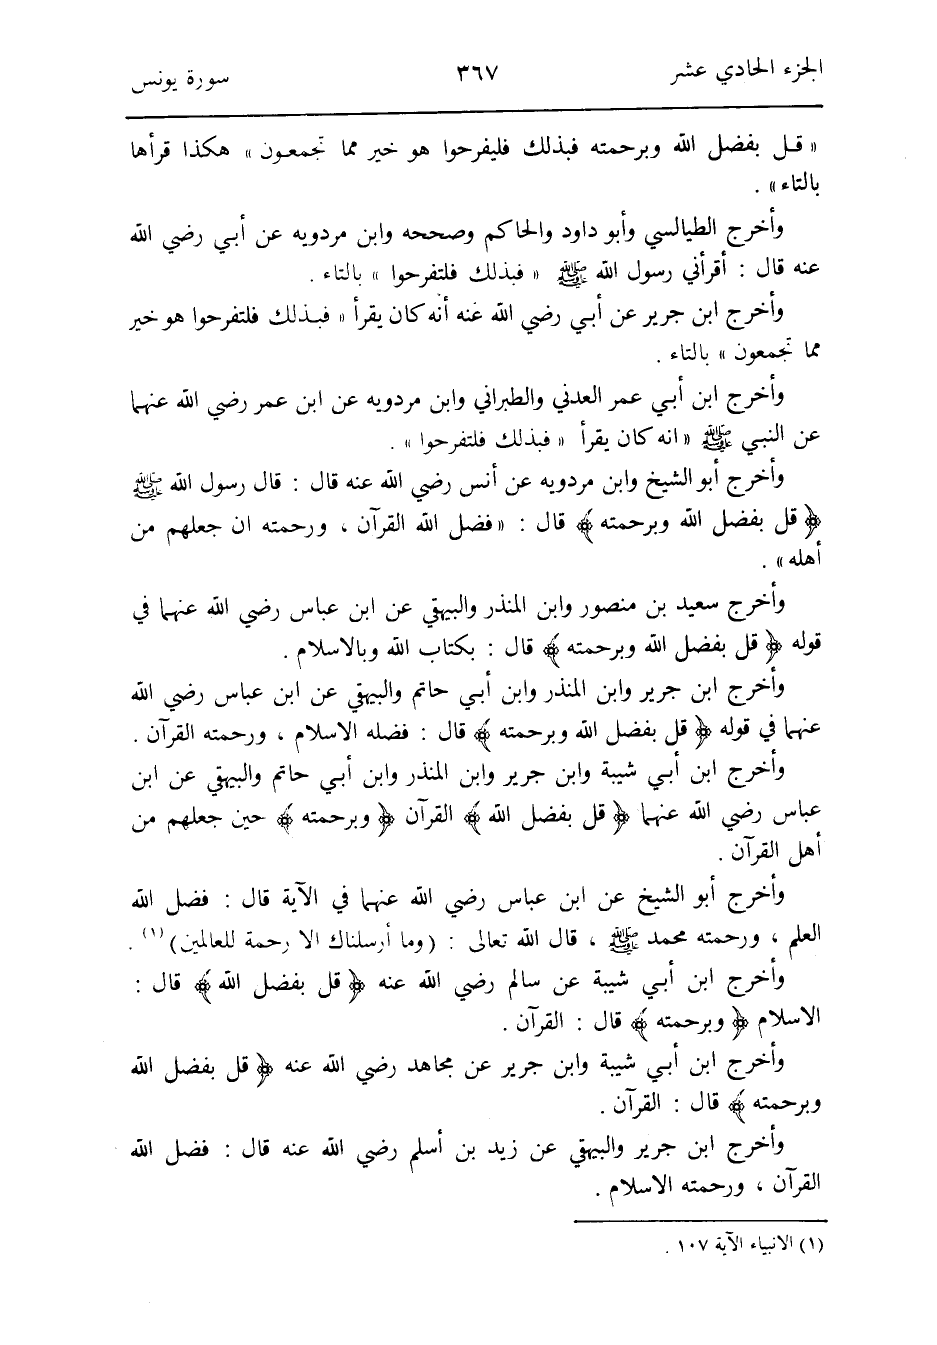 الجزء الحادي عشر ٣٦٧ سورة يونس
« قـل بفضل الله وبرحمته فبذلك فليفرحوا هو خير مما تجمعـون » هكذا قرأها
بالتاء » .
وأخرج الطيالسي وأبو داود والحاكم وصححه وابن مردويه عن أبي رضي الله
عنه قال : أقرأني رسول الله ﷺ « فبذلك فلتفرحوا » بالتاء .
وأخرج ابن جرير عن أبي رضي الله عنه أنه كان يقرأ « فبـذلك فلتفرحوا هو خير
مما تجمعون » بالتاء .
وأخرج ابن أبي عمر العدني والطبراني وابن مردويه عن ابن عمر رضي الله عنهما
عن النبي ﷺ « انه كان يقرأ « فبذلك فلتفرحوا » .
وأخرج أبو الشيخ وابن مردويه عن أنس رضي الله عنه قال : قال رسول الله ﷺ
﴿ قل بفضل الله وبرحمته ﴾ قال : « فضل الله القرآن ، ورحمته ان جعلهم من
أهله » .
وأخرج سعيد بن منصور وابن المنذر والبيهقي عن ابن عباس رضي الله عنهما في
قوله ﴿ قل بفضل الله وبرحمته ﴾ قال : بكتاب الله وبالاسلام .
وأخرج ابن جرير وابن المنذر وابن أبي حاتم والبيهقي عن ابن عباس رضي الله
عنهما في قوله ﴿ قل بفضل الله وبرحمته ﴾ قال : فضله الاسلام ، ورحمته القرآن .
وأخرج ابن أبي شيبة وابن جرير وابن المنذر وابن أبي حاتم والبيهقي عن ابن
عباس رضي الله عنهما ﴿ قل بفضل الله ﴾ القرآن ﴿ وبرحمته ﴾ حين جعلهم من
أهل القرآن .
وأخرج أبو الشيخ عن ابن عباس رضي الله عنهما في الآية قال : فضل الله
العلم ، ورحمته محمد ﷺ ، قال الله تعالى : (وما أرسلناك الا رحمة للعالمين) (١) .
وأخرج ابن أبي شيبة عن سالم رضي الله عنه ﴿ قل بفضل الله ﴾ قال :
الاسلام ﴿ وبرحمته ﴾ قال : القرآن .
وأخرج ابن أبي شيبة وابن جرير عن مجاهد رضي الله عنه ﴿ قل بفضل الله
وبرحمته ﴾ قال : القرآن .
وأخرج ابن جرير والبيهقي عن زيد بن أسلم رضي الله عنه قال : فضل الله
القرآن ، ورحمته الاسلام .
(١) الانبياء الآية ١٠٧ .